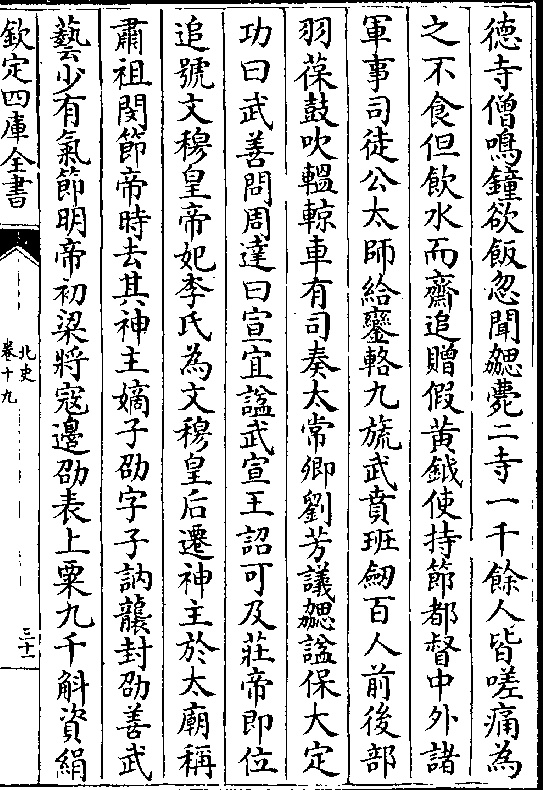 德寺僧鳴鐘欲飯忽聞勰薨二寺一千餘人皆嗟痛為
之不食但飲水而齋追贈假黄鉞使持節都督中外諸
軍事司徒公太師給鑾輅九旒武賁班劒百人前後部
羽葆鼓吹轀輬車有司奏太常卿劉芳議勰諡保大定
功曰武善問周達曰宣宜諡武宣王詔可及莊帝即位
追號文穆皇帝妃李氏為文穆皇后遷神主於太廟稱
肅祖閔節帝時去其神主嫡子劭字子訥襲封劭善武
藝少有氣節明帝初梁將寇邊劭表上粟九千斛資絹
欽定四庫全書
北史
卷十九
三十一